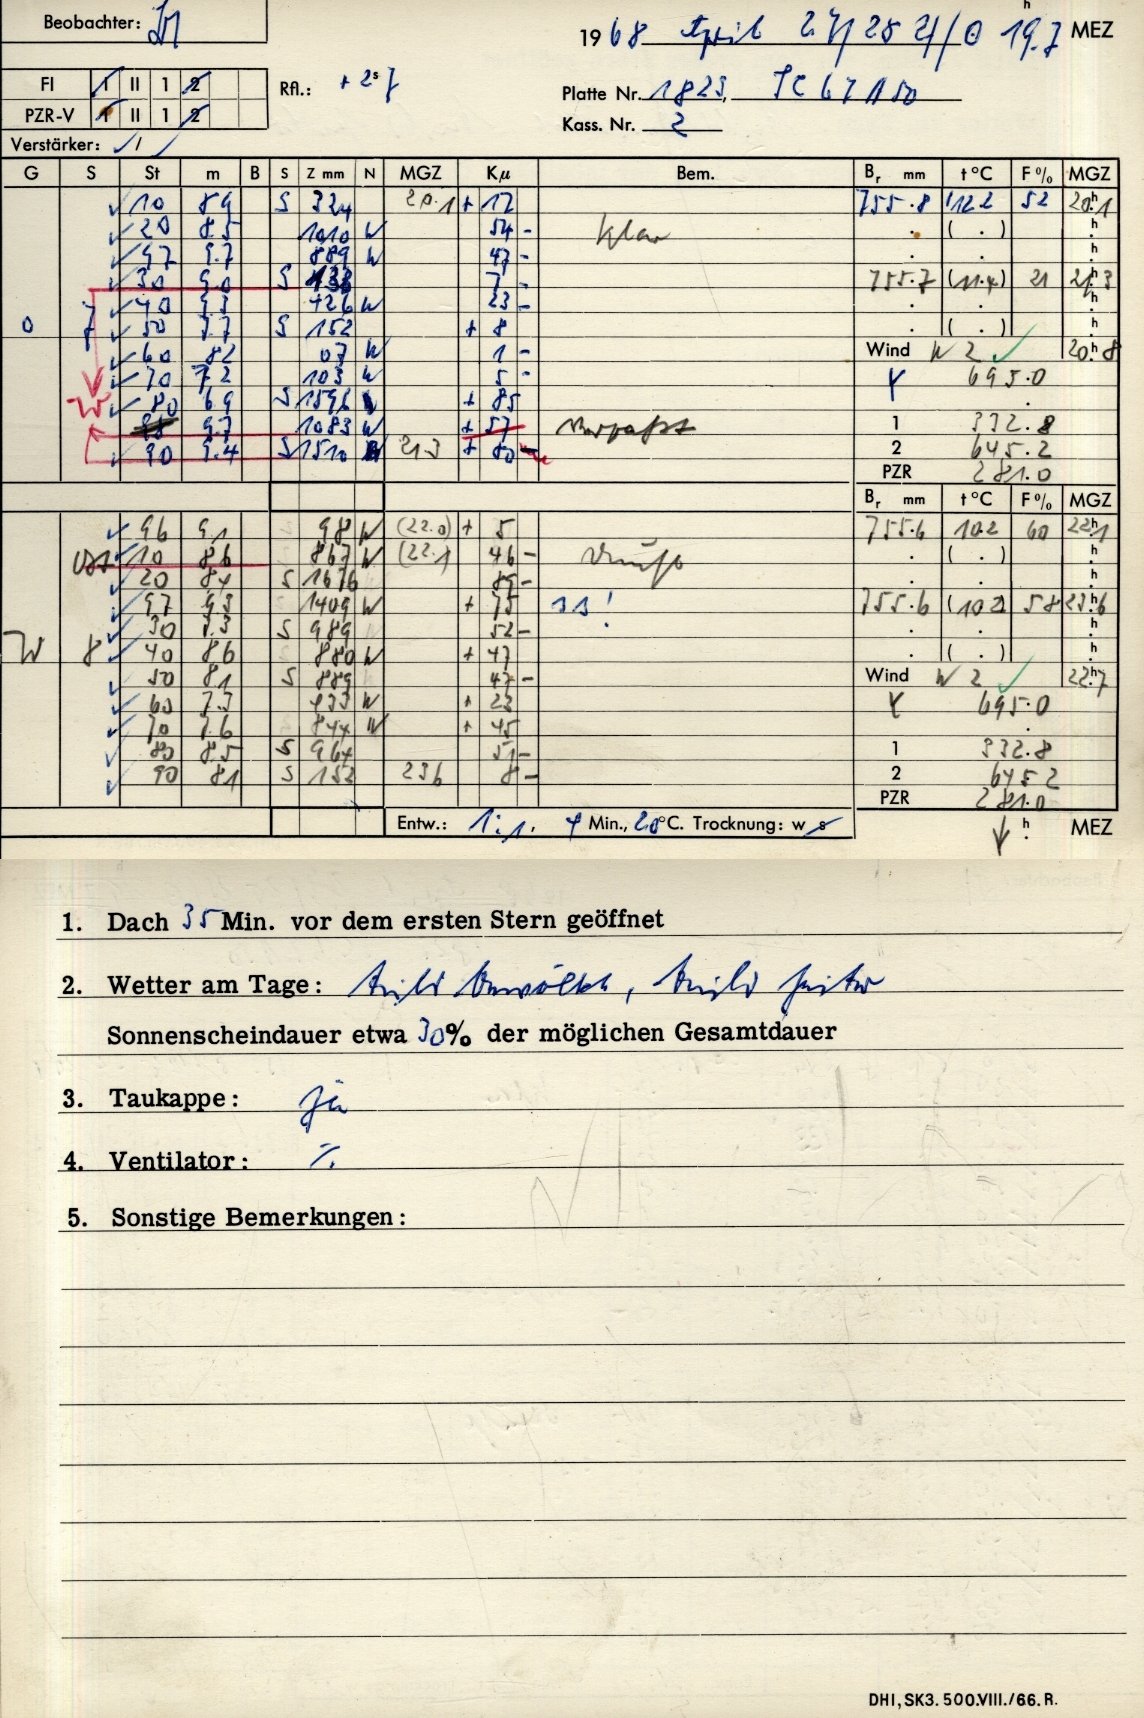 Beobachter:
1968 April 27/28 21/0 19.7 h MEZ
FI I II 1 2
Rfl.: + 2s7
Platte Nr. 1823,
PZR-V I II 1 2
Kass. Nr. 2
Verstärker: /
G S St m B S Z mm N MGZ Kµ Bem. Br mm t °C F % MGZ
10 89 S 324 20.1 + 17 755.8 (12.2 52 20h1
20 8.5 1010 W 54 - klar . ( . ) h
97 9.7 889 W 47 - . . h
30 9.0 S 138 7 - 755.7 (11.4) 21 21h3
40 9.3 426 W 23 - . . h
0 7 50 7.7 S 152 + 8 . ( . ) h
60 82 07 W 1 - Wind W 2 20h8
70 7.2 103 W 5 - Y 695.0
W 80 69 S 1596 + 85
9.7 1083 W + 57 verpaßt 1 332.8
90 9.4 S 1510 21.3 + 80 2 645.2
PZR 281.0
Br mm t °C F % MGZ
96 9.1 98 W (22.0) + 5 755.6 10.2 60 22h1
10 86 867 W (22.1 46 - . ( . ) h
20 84 S 1676 89 - . . h
97 9.3 1409 W + 75 11! 755.6 (10.2 58 23h6
30 9.3 S 989 52 - . . h
W 8 40 86 880 W + 47 . ( . ) h
50 81 S 889 47 - Wind W 2 22h7
60 7.7 433 W + 23 Y 695.0
70 7.6 844 W + 45
80 8.5 S 964 51 - 1 332.8
90 81 S 152 23.6 8 - 2 645.2
PZR 281.0
Entw.: 1:1. 4 Min., 20°C. Trocknung: w s h MEZ
1. Dach 35 Min. vor dem ersten Stern geöffnet
2. Wetter am Tage: teils bewölkt, teils heiter
Sonnenscheindauer etwa 30% der möglichen Gesamtdauer
3. Taukappe: ja
4. Ventilator: ./.
5. Sonstige Bemerkungen:
DHI, SK3. 500.VIII./66. R.